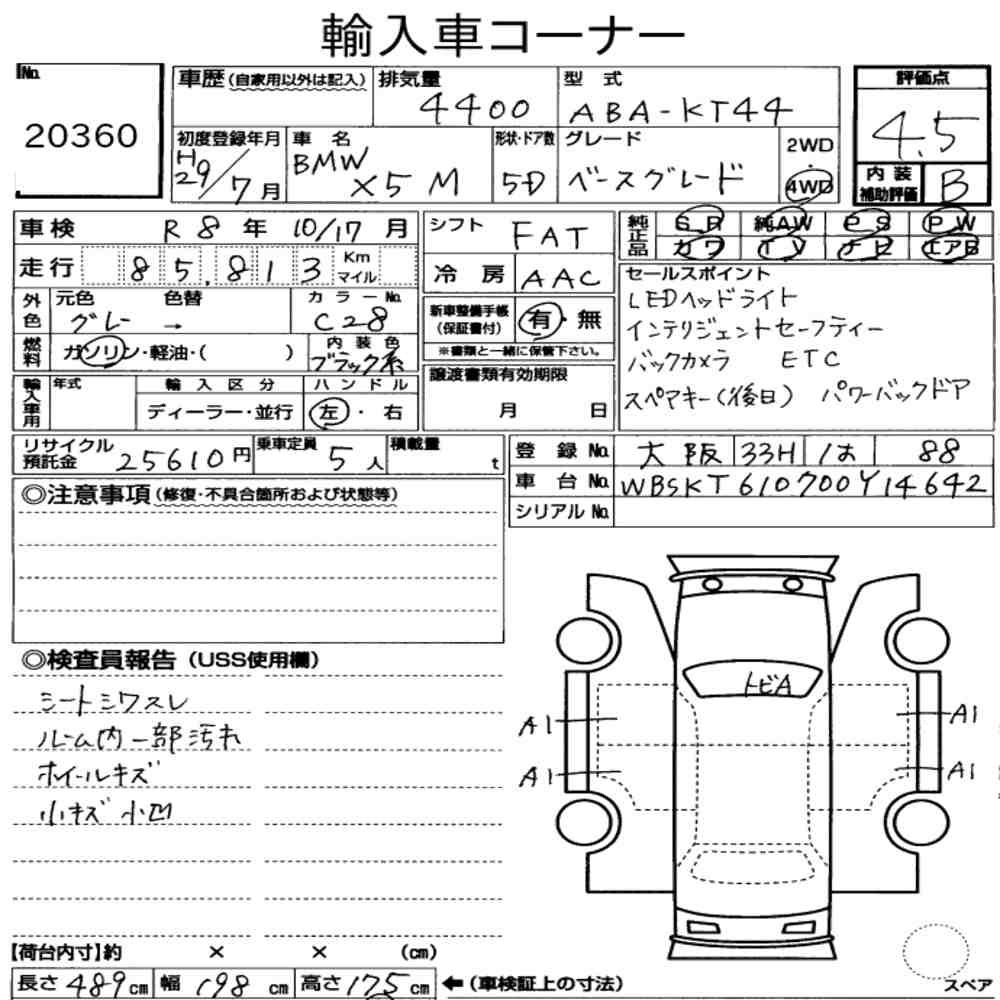 輸入車コーナー
No. 20360
車歴 (自家用以外は記入) 排気量 4400 型式 ABA-KT44 評価点 4.5
初度登録年月 H29/7月 車名 BMW X5 M 形状・ドア数 5D グレード ベースグレード 2WD・4WD 内装補助評価 B
車検 R8年10/17月 シフト FAT 純正品 S R 純AW P S P W
走行 85,813 Km マイル 冷房 AAC カワ T V ナビ エアB
外色 元色 グレー 色替 → カラーNo. C28 新車整備手帳 (保証書付) 有・無
※書類と一緒に保管下さい。
燃料 ガソリン・軽油・( ) 内装色 ブラック系
輸入車用 年式 輸入区分 ディーラー・並行 ハンドル 左・右 譲渡書類有効期限 月 日
セールスポイント
LEDヘッドライト
インテリジェントセーフティー
バックカメラ ETC
スペアキー(後日) パワーバックドア
リサイクル預託金 25610円 乗車定員 5人 積載量 t 登録No. 大阪 33H は 88
車台No. WBSKT610700Y14642
シリアルNo.
◎注意事項 (修復・不具合箇所および状態等)
◎検査員報告 (USS使用欄)
シートシワスレ
ルーム内一部汚れ
ホイールキズ
小キズ小凹
トビA
A1 A1
A1 A1
【荷台内寸】約 × × (cm)
長さ 489cm 幅 198cm 高さ 175cm ←(車検証上の寸法) スペア